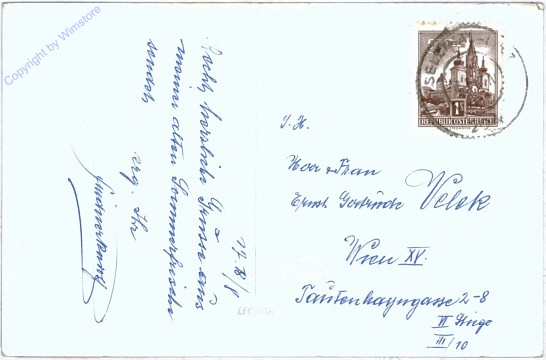 Copyright by Wimstore
Recht herzliche Grüsse aus
meiner alten Sommerfrische
sendet
erg. Ihr
17. / 8
REPUBLIK ÖSTERREICH
Herr u Frau
Ernst Gertrude Velek
Wien XV.
Tautenhayngasse 2-8
VI Stiege
III/10